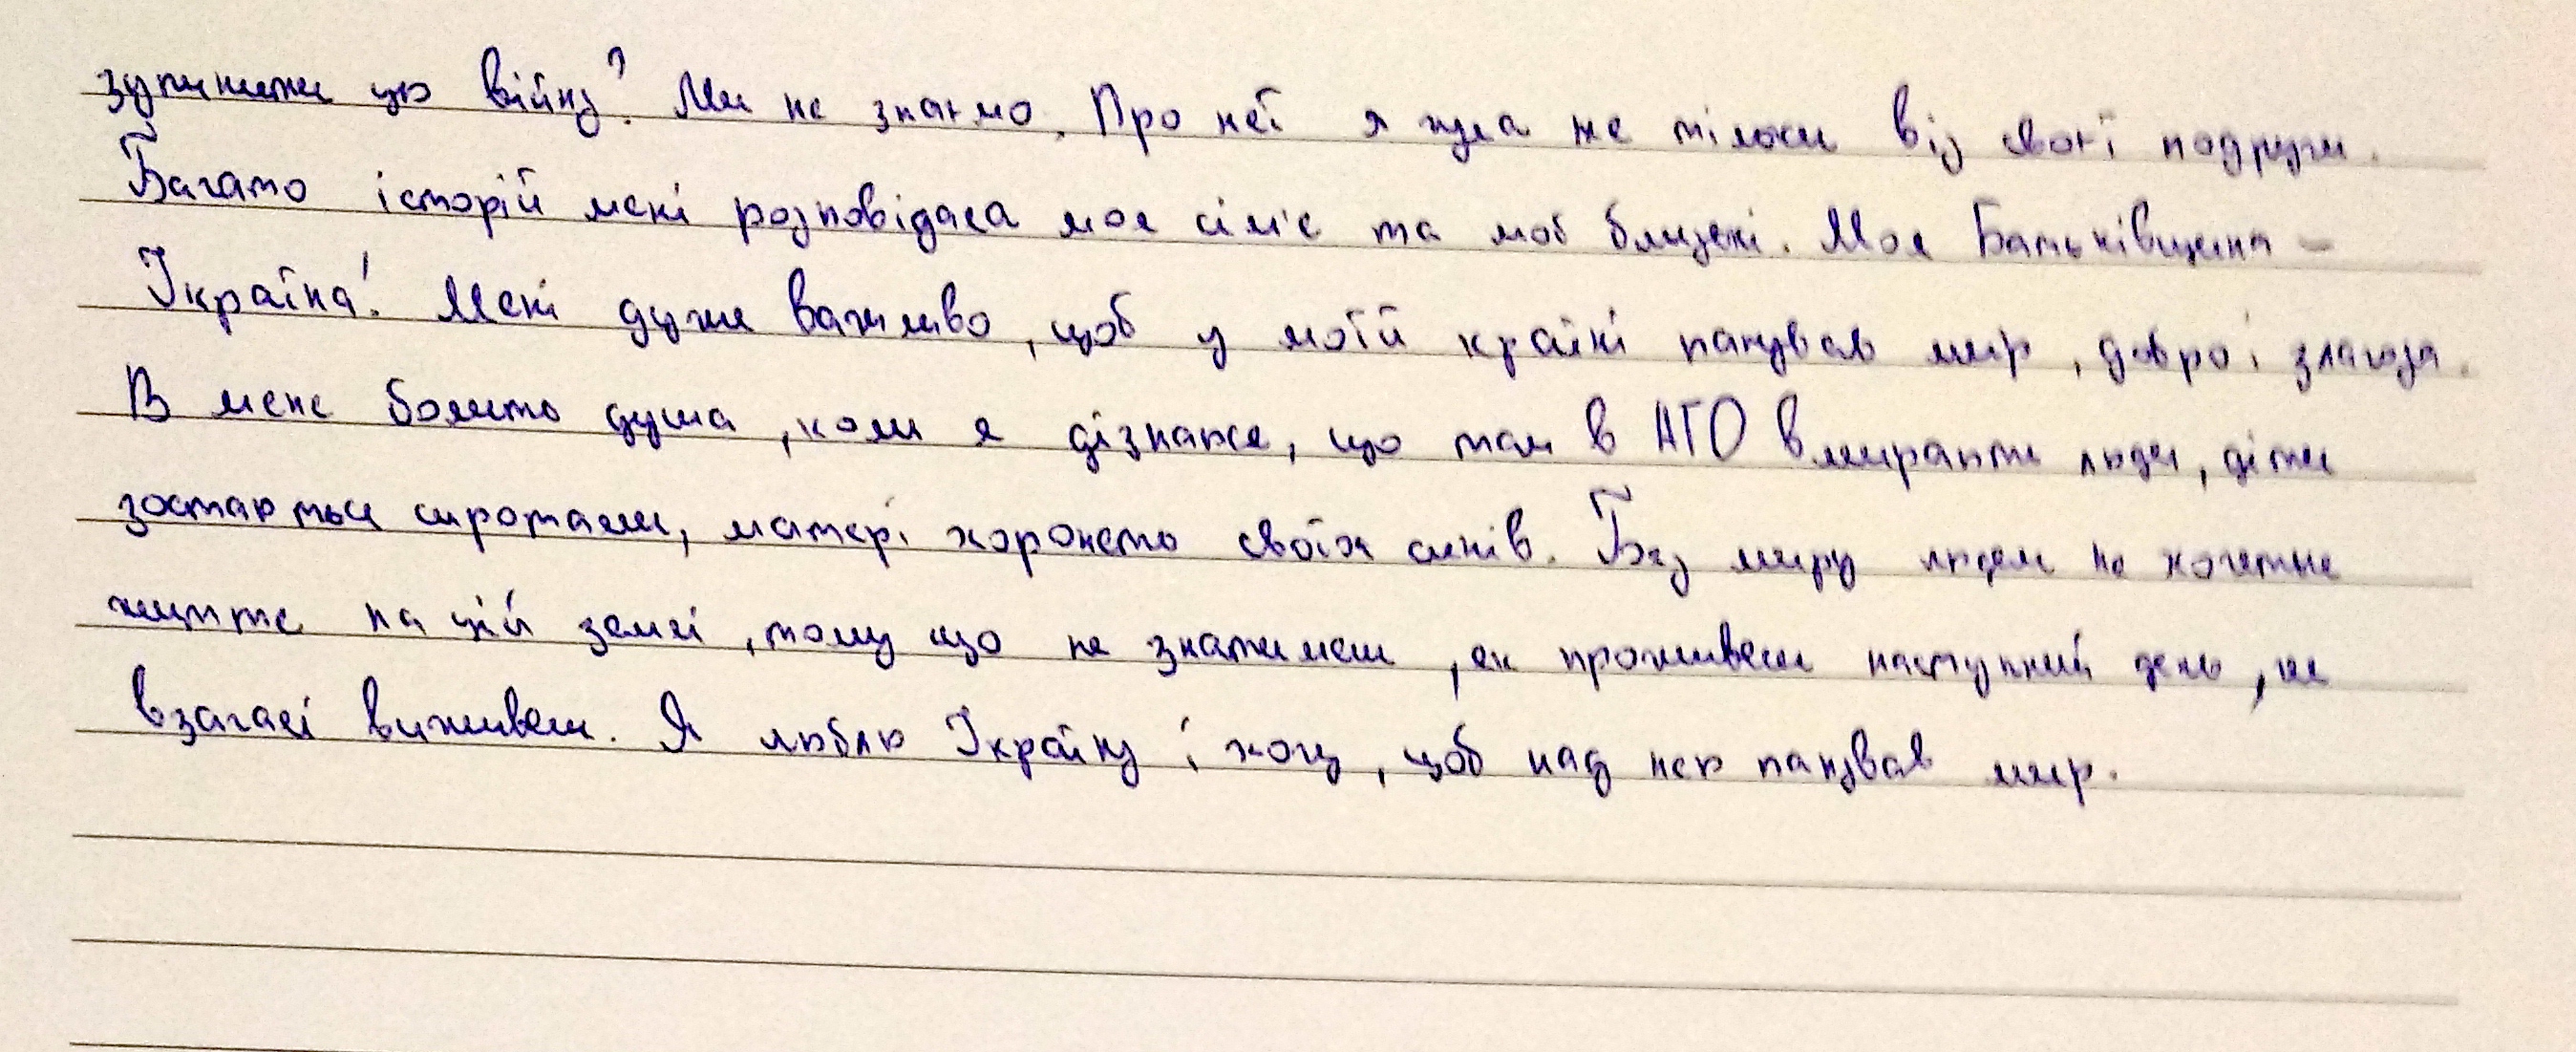 зупинити цю війну? Ми не знаємо. Про неї я чула не тільки від своєї подруги.
Багато історій мені розповідала моя сім'я та мої близькі. Моя Батьківщина -
Україна! Мені дуже важливо, щоб у моїй країні панував мир, добро і злагода.
В мене болить душа, коли я дізнаюся, що там в АТО вмирають люди, діти
зостаються сиротами, матері хоронять своїх синів. Без миру людям не хочеться
життя на цій землі, тому що не знатимеш, як проживеш наступний день, чи
взагалі виживеш. Я люблю Україну і хочу, щоб над нею панував мир.